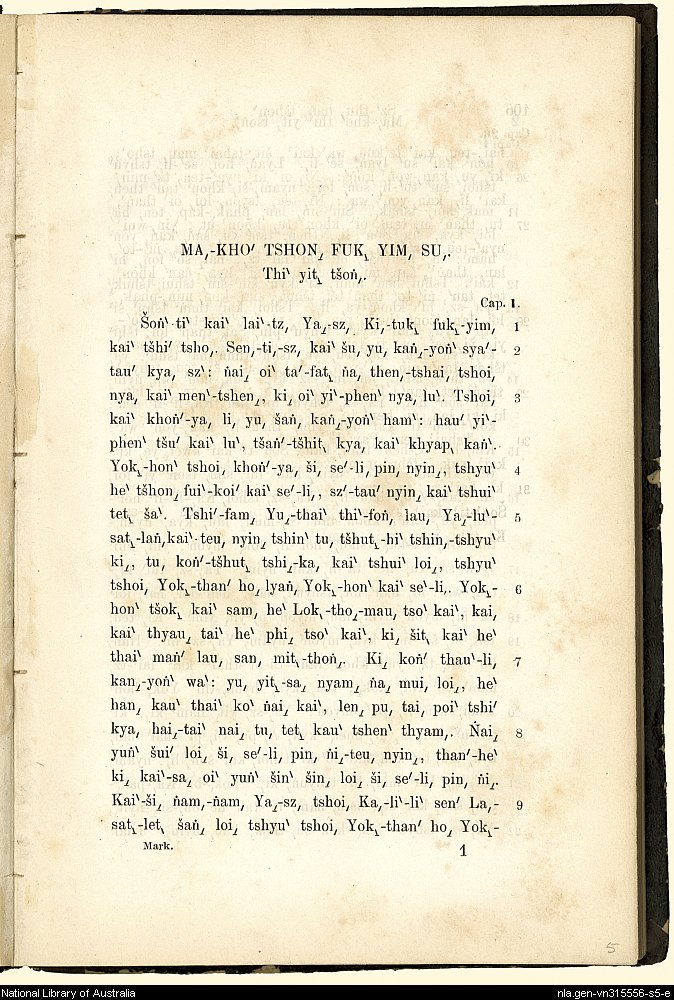 MA,-KHO′ TSHON⸝ FUK⸜ YIM, SU,.
Thi‵ yit⸜ tšoṅ,.
Cap. 1.
Šoṅ‵-ti‵ kai‵ lai‵-tz, Ya⸝-sz, Ki,-tuk⸜ fuk⸜-yim, 1
kai‵ tšhi′ tsho,. Sen,-ti,-sz, kai‵ šu, yu, kaṅ,-yoṅ‵ sya′- 2
tau′ kya, sz‵: ṅai⸝ oi‵ ta′-fat⸜ ṅa, then,-tshai, tshoi,
nya, kai‵ men‵-tshen⸝, ki⸝ oi‵ yi‵-phen‵ nya, lu‵. Tshoi, 3
kai‵ khoṅ′-ya, li, yu, šaṅ, kaṅ⸝-yoṅ‵ ham‵: hau′ yi‵-
phen‵ tšu′ kai‵ lu‵, tšaṅ′-tšhit⸜ kya, kai‵ khyap⸜ kaṅ‵.
Yok⸜-hon‵ tshoi, khoṅ′-ya, ši, se′-li, pin, nyin⸝, tshyu‵ 4
he‵ tšhon⸝ fui‵-koi′ kai‵ se′-li,, sz‵-tau′ nyin⸝ kai‵ tshui‵
tet⸜ ša‵. Tshi′-fam⸝ Yu⸝-thai‵ thi‵-foṅ, lau, Ya⸝-lu‵- 5
sat⸜-laṅ, kai‵-teu, nyin⸝ tshin‵ tu, tšhut⸜-hi‵ tshin,-tshyu‵
ki⸝, tu, koṅ′-tšhut⸜ tshi⸝-ka, kai‵ tshui‵ loi⸝, tshyu‵
tshoi, Yok⸜-than′ ho⸝ lyaṅ, Yok⸜-hon‵ kai‵ se‵-li,. Yok⸜- 6
hon‵ tšok⸜ kai‵ sam, he‵ Lok⸜-tho⸝-mau, tso‵ kai‵, kai,
kai‵ thyau⸝ tai‵ he‵ phi⸝ tso‵ kai‵, ki⸝ šit⸜ kai‵ he‵
thai‵ maṅ′ lau, san, mit⸜-thoṅ⸝. Ki⸝ koṅ′ thau‵-li, 7
kan⸝-yoṅ‵ wa‵: yu, yit⸜-sa⸝ nyam⸝ ṅa⸝ mui, loi⸝, he‵
han⸝ kau‵ thai‵ ko‵ ṅai⸝ kai‵, len⸝ pu, tai, poi‵ tshi′
kya, hai⸝-tai‵ nai⸝ tu, tet⸜ kau‵ tshen‵ thyam,. Ṅai⸝ 8
yuṅ‵ šui′ loi⸝ ši, se′-li, pin, ṅi⸝-teu, nyin⸝, than′-he‵
ki⸝ kai‵-sa⸝ oi‵ yuṅ‵ šin‵ šin⸝ loi⸝ ši, se′-li, pin, ṅi⸝.
Kai‵-ši⸝ ṅam,-ṅam, Ya⸝-sz, tshoi, Ka,-li‵-li‵ sen′ La,- 9
sat⸜-let⸜ šaṅ⸝ loi⸝ tshyu‵ tshoi, Yok⸜-than′ ho⸝ Yok⸜-
Mark. 1
5
National Library of Australia
nla.gen-vn315556-s5-e